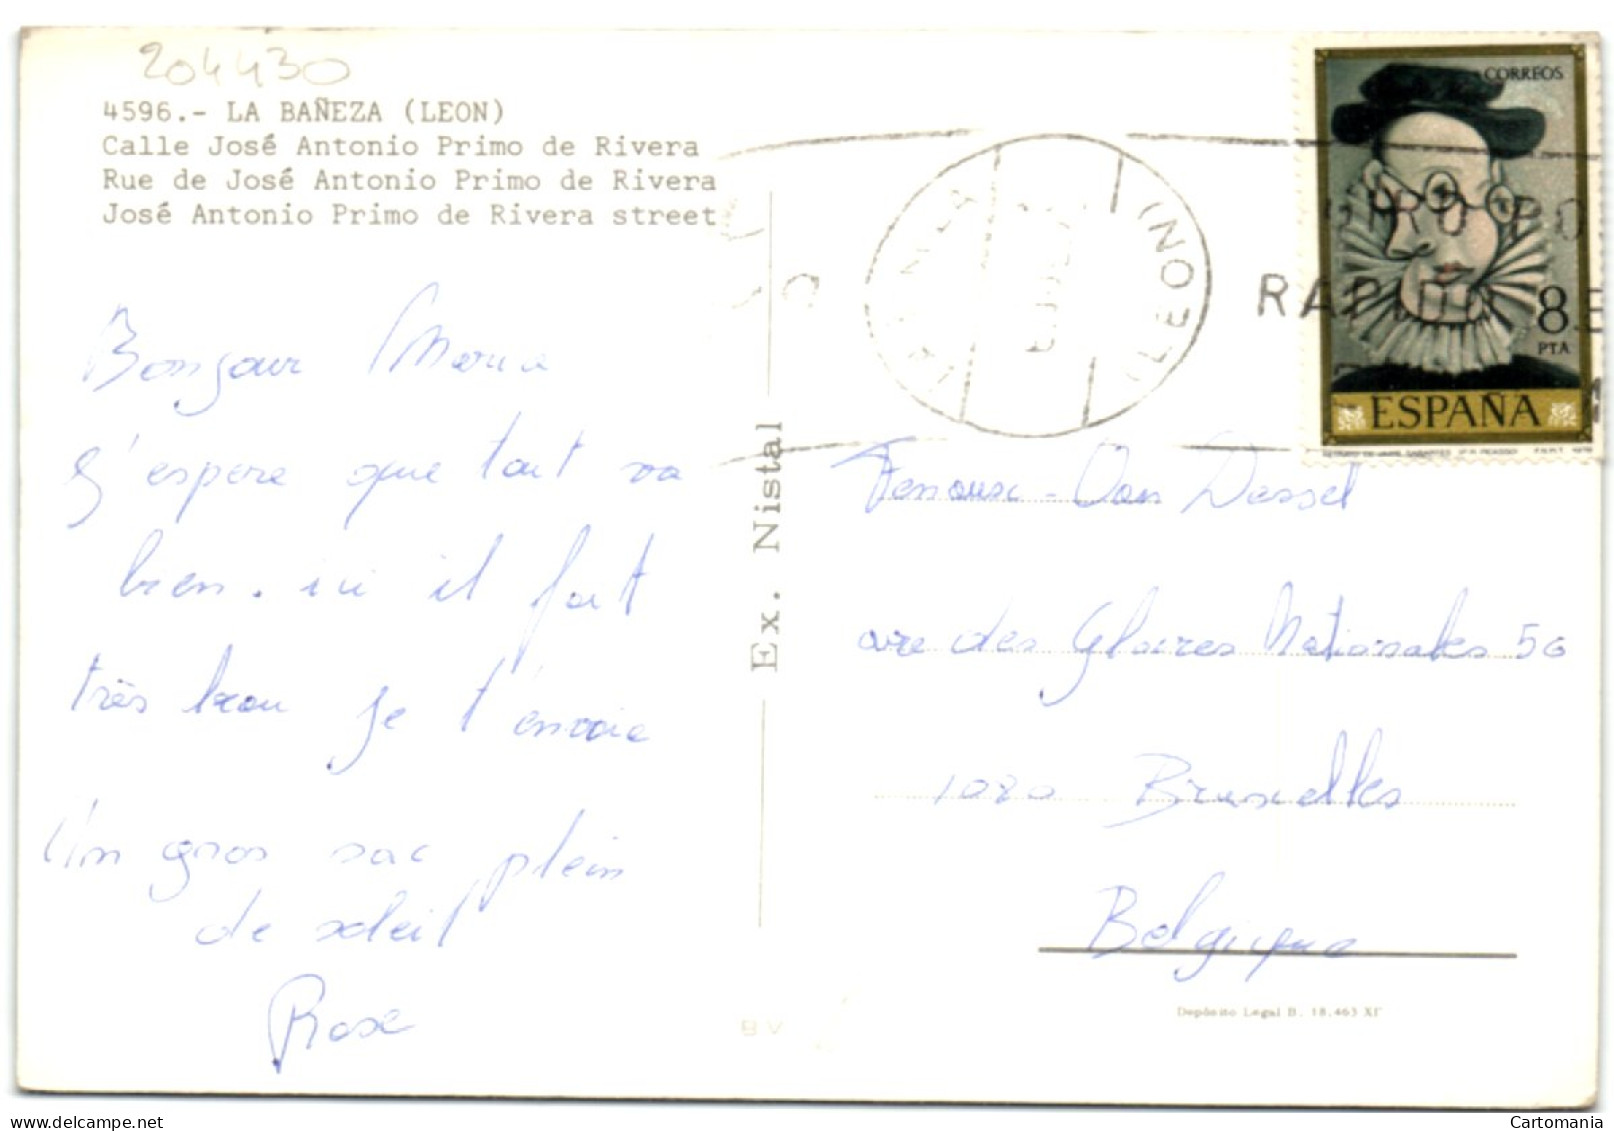 204430
4596.- LA BAÑEZA (LEON)
Calle José Antonio Primo de Rivera
Rue de José Antonio Primo de Rivera
José Antonio Primo de Rivera street
Bonjour Maria
j'espere que tout va
bien. ici il fait
très beau je t'envoie
Un gros sac plein
de soleil
Rose
Ex. Nistal
BV
(LEON)
RAPIDO
CORREOS
8
PTA
ESPAÑA
Van Dassel
ave des Gloires Nationales 56
1080 Bruxelles
Belgique
Depósito Legal B. 18.463 XI
www.delcampe.net
Cartomania